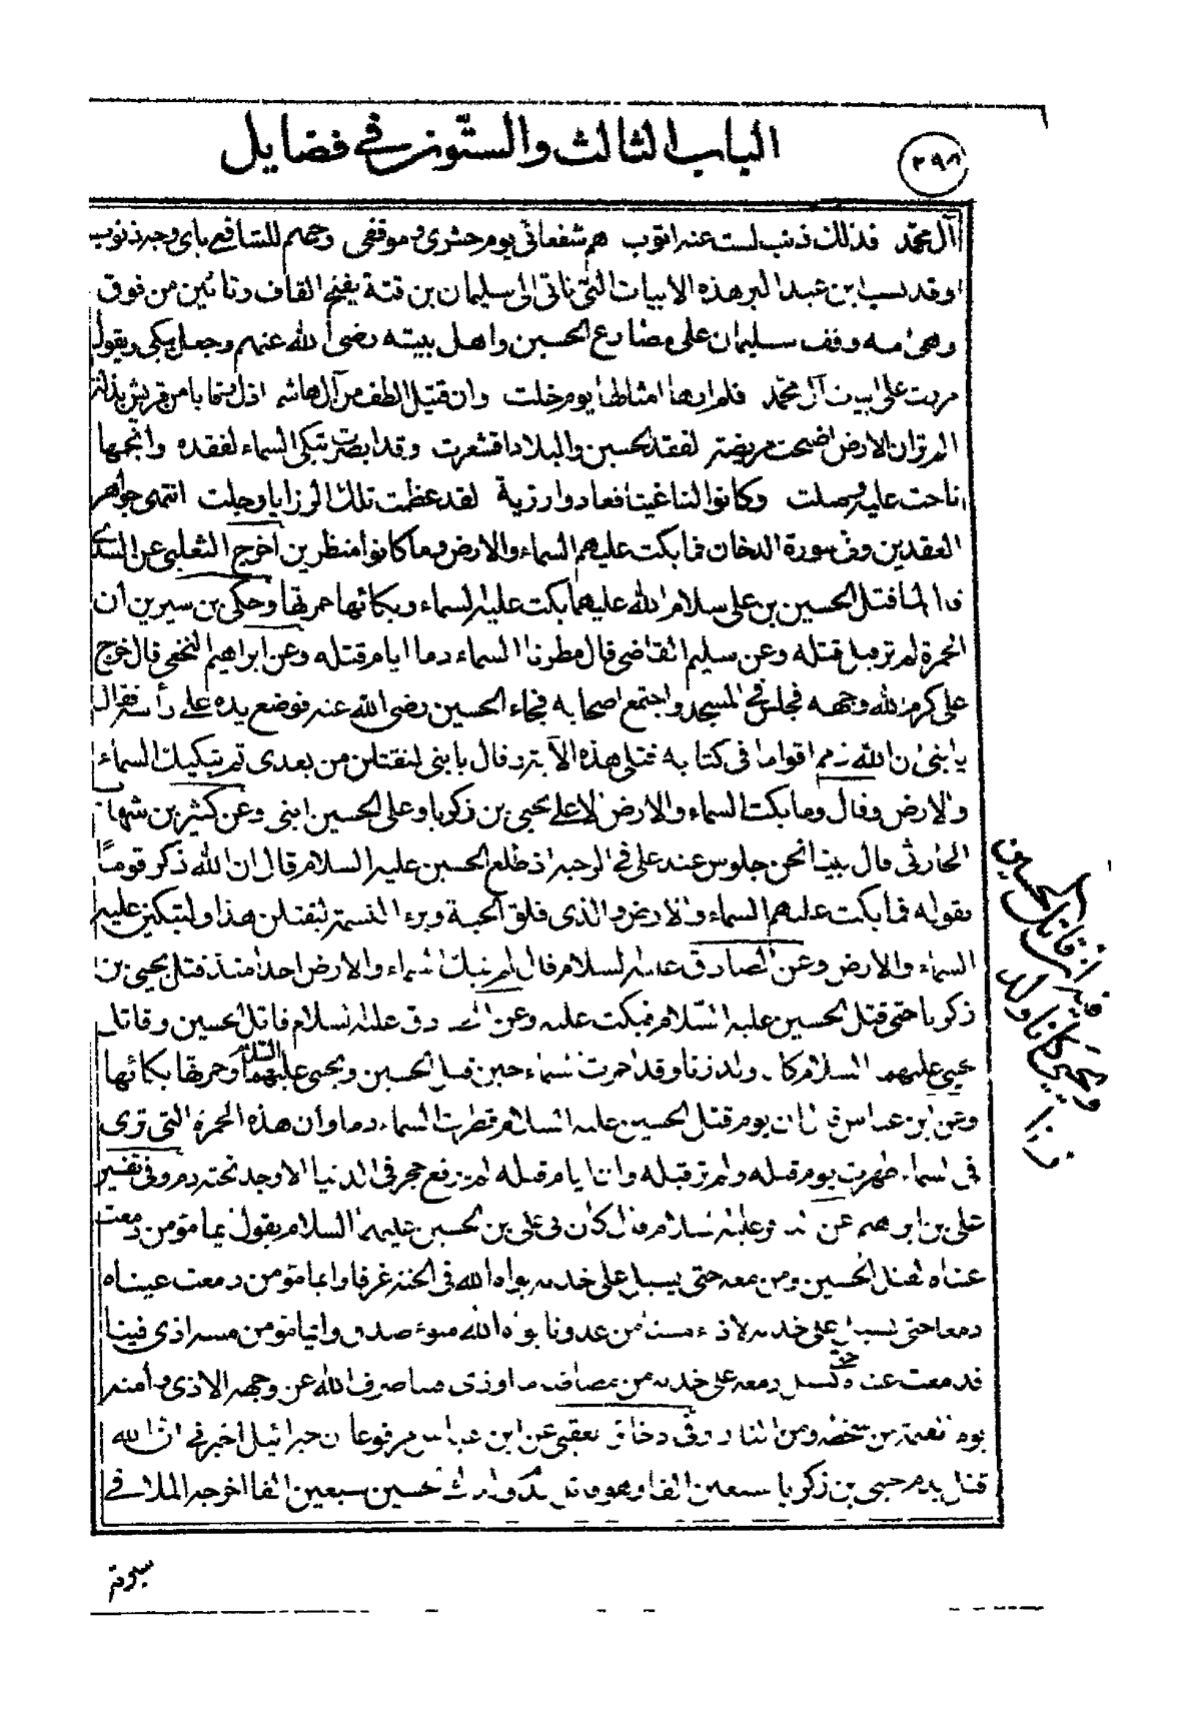 الباب الثالث والستون في فضايل
٢٩٨
آل محمد فذلك ذنب لست عنه اتوب هم شفعائي يوم حشري وموقفي وحبهم للشافعي باي وجه ذنوب
وقد نسب ابن عبد البر هذه الابيات التي تاتي الى سليمان بن قتة بفتح القاف وتائين من فوق
وقف سليمان على مصارع الحسين واهل بيته رضي الله عنهم وجعل يبكي ويقول
مررت على ابيات آل محمد فلم ارها امثالها يوم حلت وان قتيل الطف من آل هاشم اذل رقابا من قريش فذلت
الم تر ان الارض اضحت مريضة لفقد الحسين والبلاد اقشعرت وقد ابصرت تبكي السماء لفقده وانجمها
ناحت عليه وصلت وكانوا لنا غيثا فعادوا رزية لقد عظمت تلك الرزايا وجلت انتهى جواهر
العقدين وفي سورة الدخان فما بكت عليهم السماء والارض وما كانوا منظرين اخرج الثعلبي عن السدي
قال لما قتل الحسين بن علي سلام الله عليهما بكت عليه السماء وبكائها حمرتها وحكى بن سيرين ان
الحمرة لم تر قبل قتله وعن سليم القاضي قال مطرنا السماء دما ايام قتله وعن ابراهيم النخعي قال خرج
علي كرم الله وجهه فجلس في المسجد واجتمع اصحابه فجاء الحسين رضي الله عنه فوضع يده على رأسه فقال
يا بني ان الله ذم اقواما في كتابه فتلى هذه الآية وقال يا بني لتقتلن من بعدي ثم تبكيك السماء
والارض وقال وما بكت السماء والارض الا على يحيى بن زكريا وعلى الحسين ابني وعن كثير بن شهاب
الحارثي قال بينا نحن جلوس عند علي في الرحبة اذ طلع الحسين عليه السلام قال ان الله ذكر قوما
بقوله فما بكت عليهم السماء والارض والذي فلق الحبة وبرء النسمة ليقتلن هذا ولتبكين عليه
السماء والارض وعن الصادق عليه السلام قال لم تبك السماء والارض احدا منذ قتل يحيى بن
زكريا حتى قتل الحسين عليه السلام فبكت عليه وعن الصادق عليه السلام قاتل الحسين وقاتل
يحيى عليهما السلام كانا ولد زنا وقد احمرت السماء حين قتل الحسين ويحيى عليهما السلام وحمرتها بكائها
وعن ابن عباس قال ان يوم قتل الحسين عليه السلام قطرت السماء دما وان هذه الحمرة التي ترى
في السماء ظهرت يوم قتله ولم تر قبله وان ايام قتله لم يرفع حجر في الدنيا الا وجد تحته دم وفي تفسير
علي بن ابراهيم عن الباقر عليه السلام قال كان ابي علي بن الحسين عليهما السلام يقول ايما مؤمن دمعت
عيناه لقتل الحسين ومن معه حتى يسيل على خديه بواه الله في الجنة غرفا وايما مؤمن دمعت عيناه
دمعا حتى يسيل على خديه لاذى مسنا من عدونا بواه الله مبوء صدق وايما مؤمن مسه اذى فينا
فدمعت عيناه حتى يسيل دمعه على خديه من مضاضة ما اوذي فينا صرف الله عن وجهه الاذى وآمنه
يوم القيمة من سخطه ومن النار وفي ذخائر العقبى عن ابن عباس مرفوعا ان جبرائيل اخبرني ان الله
قتل بدم يحيى بن زكريا سبعين الفا وهو قاتل بدم ولدك الحسين سبعين الفا اخرجه الملا في
سيرته
فيه ان قاتل الحسين
ويحيى كانا ولد
زنا